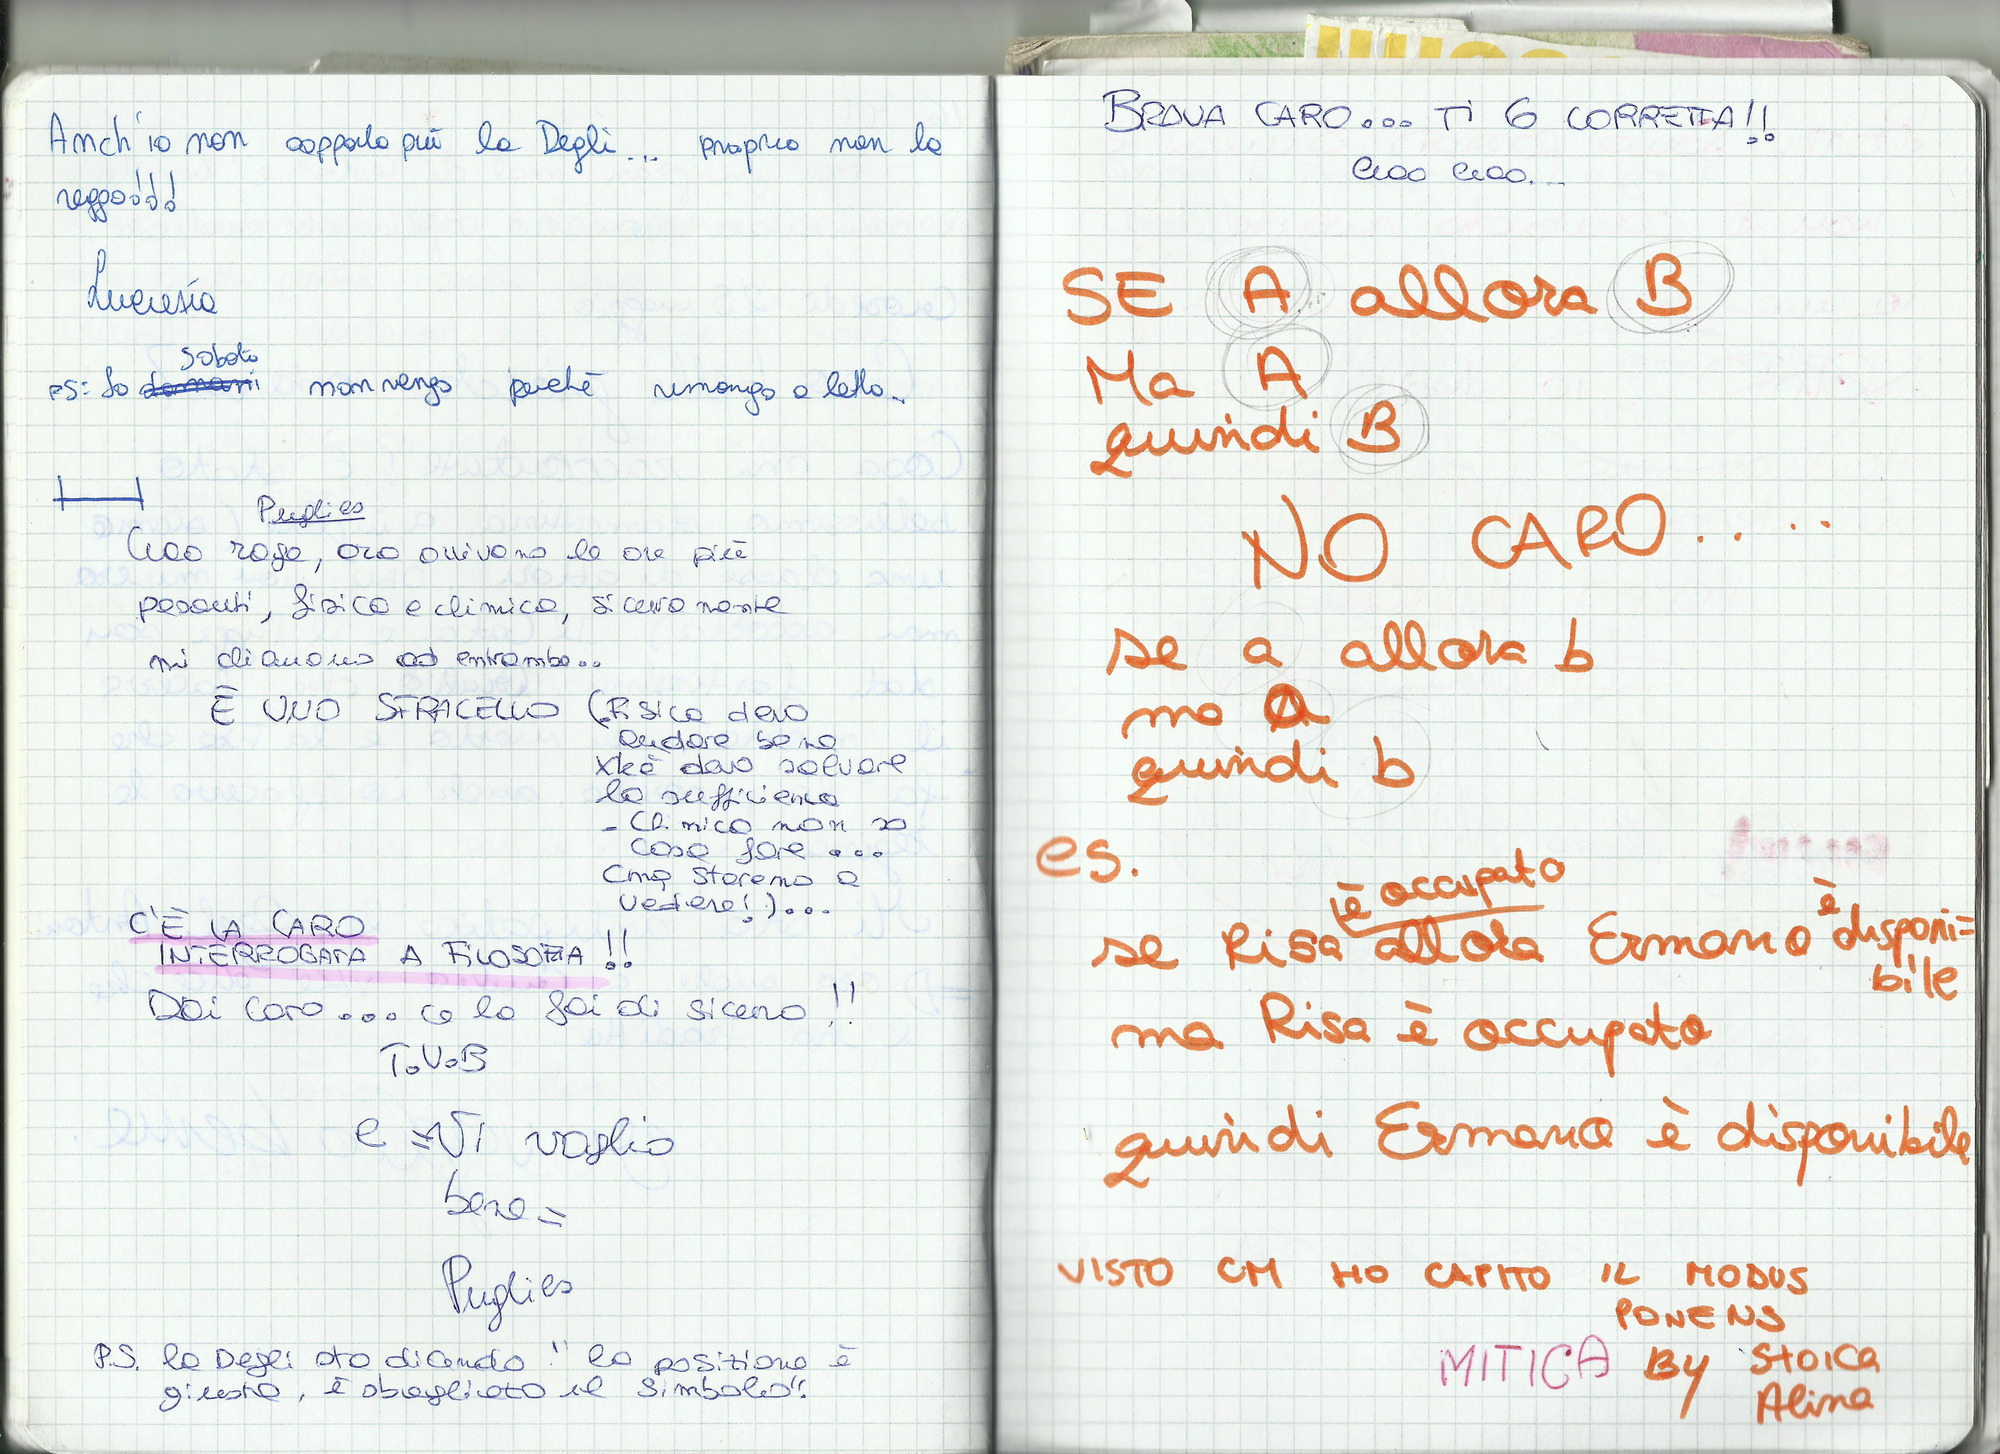 Anch'io non sopporto più la Degli... proprio non la
reggo!!!
Lucrezia
sabato
PS: Io domani non vengo perchè rimango a letto...
Puglies
Ciao raga, ora arrivano le ore più
pesanti, fisica e chimica, sicuramente
mi chiamano ad entrambe..
È UNO STRACELLO (Fisica devo
andare bene
xkè devo salvare
la sufficienza
- Chimica non so
cosa fare ...
Cmq staremo a
vedere!)...
C'È LA CARO
INTERROGATA A FILOSOFIA!!
Dai caro... ce la fai di sicuro!!
T.V.B
e =Vi voglio
bene=
Puglies
P.S. la Degli sta dicendo "la posizione è
giusta, è sbagliato il simbolo".
BRAVA CARO... TI 6 CORRETTA!!
ciao ciao...
SE A allora B
Ma A
quindi B
NO CARO.....
se a allora b
ma a
quindi b
es.
è occupato è
se Risa allora Ermano disponi=
bile
ma Risa è occupato
quindi Ermano è disponibile
VISTO CM HO CAPITO IL MODUS
PONENS
MITICA BY Stoica
Alina